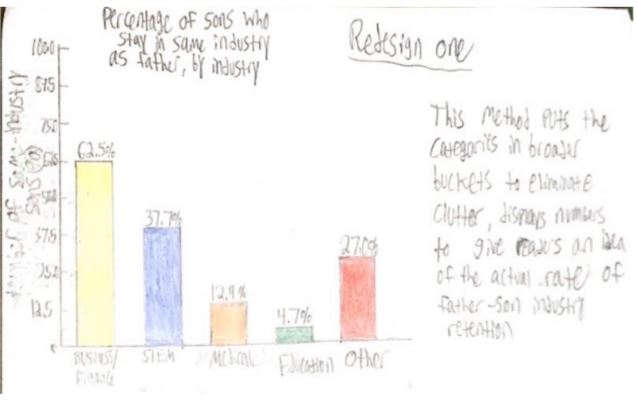 Percentage of sons who
stay in same industry
as father, by industry
Redesign one
100.0
87.5
75.0
62.5
50.0
37.5
25.0
12.5
0
of same-industry
sons (%)
62.5%
37.7%
12.4%
4.7%
27.0%
Business/
Finance
STEM
Medicine
Education
Other
This Method puts the
Categories in broader
buckets to eliminate
Clutter, displays numbers
to give readers an idea
of the actual rate of
father-son industry
retention